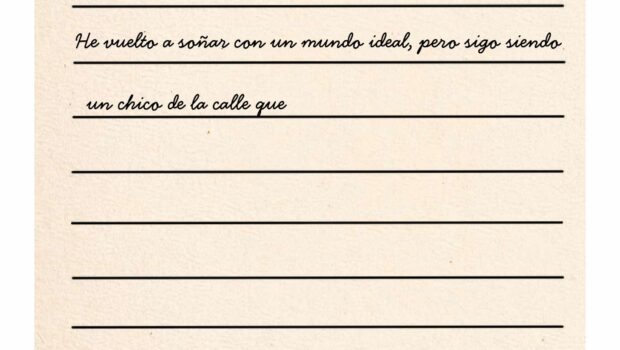 He vuelto a soñar con un mundo ideal, pero sigo siendo
un chico de la calle que